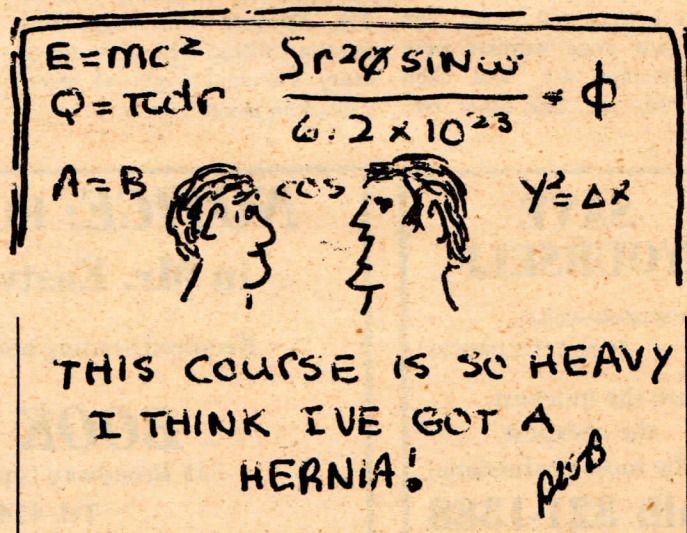 E=mc²
Q=πdr
∫r²φ SINω
6.2 x 10²³
= φ
A=B
cos
Y²=Δx
THIS COURSE IS SO HEAVY
I THINK IVE GOT A
HERNIA!